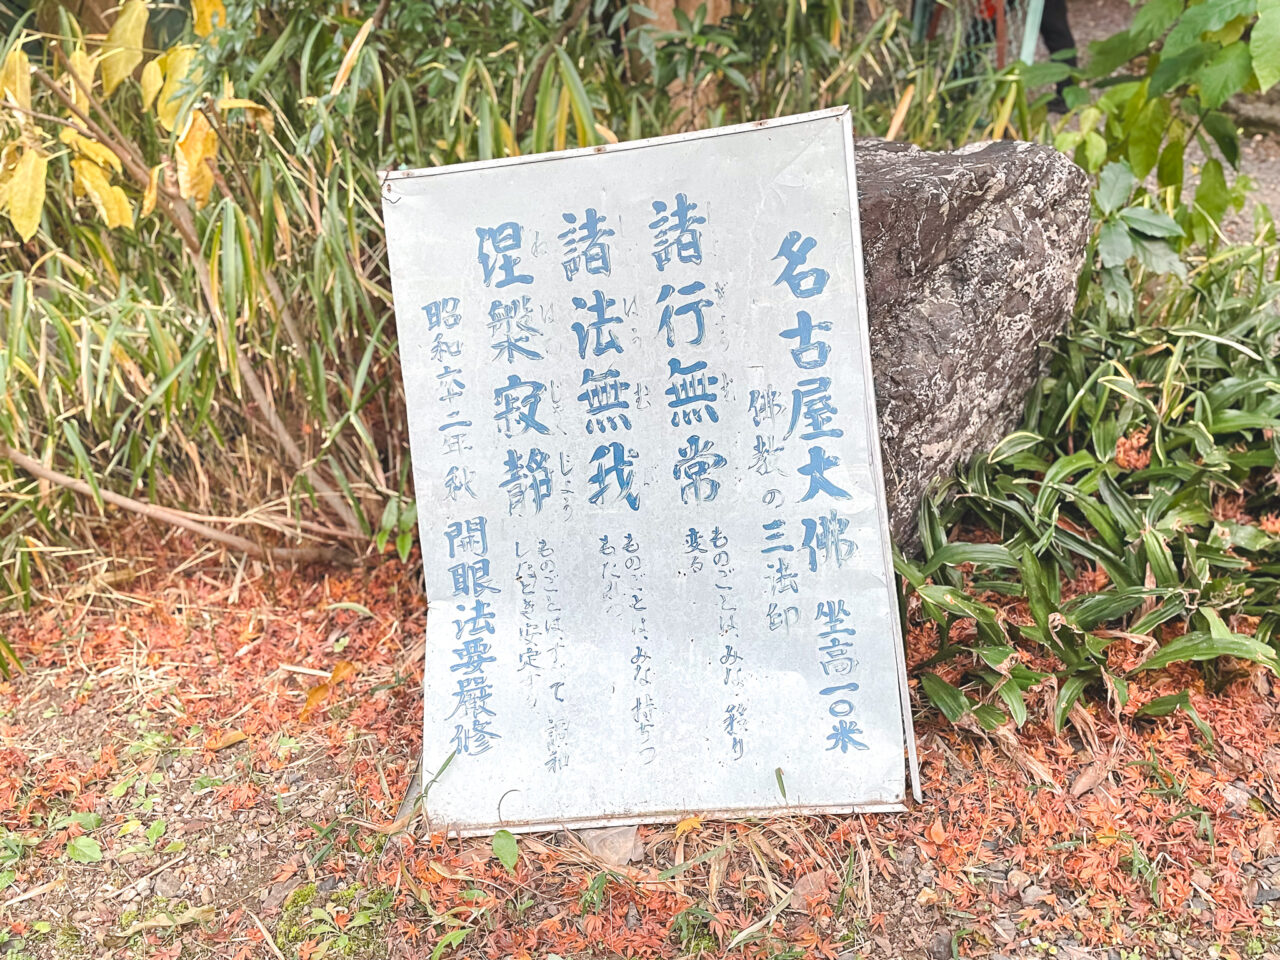 名古屋大佛 坐高一〇米
一、佛教の三法印
諸行無常 ものごとは、みな 移り
変る
諸法無我 ものごとは、みな 持ちつ
もたれつ
涅槃寂静 ものごとは、すべて 調和
したとき安定す
昭和六十二年秋 開眼法要嚴修